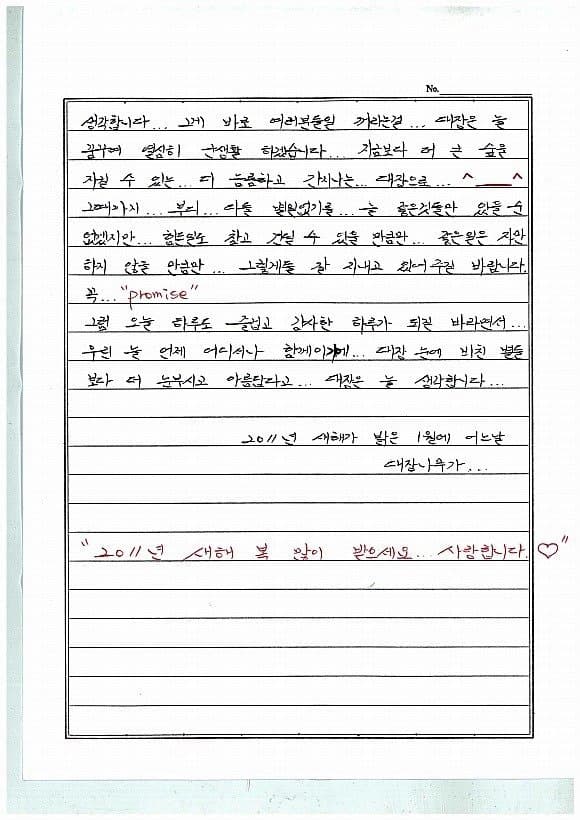 No.
생각합니다... 그게 바로 여러분들일 꺼라는걸... 대장은 늘
꿈꾸며 열심히 군생활 하겠습니다... 지금보다 더 큰 숲을
지킬 수 있는... 더 늠름하고 간지나는... 대장으로... ^___^
그때까지... 부디... 다들 별일없기를... 늘 좋은것들만 있을 순
없겠지만... 힘든일도 참고 견딜 수 있을 만큼만... 궂은일은
하지 않을 만큼만... 그렇게들 잘 지내고 있어주길 바랍니다.
꼭... "promise"
그럼 오늘 하루도 즐겁고 감사한 하루가 되길 바라면서...
우린 늘 언제 어디서나 함께이기에... 대장 눈에 비친 별들
보다 더 눈부시고 아름답다고... 대장은 늘 생각합니다...
2011년 새해가 밝은 1월에 어느날
대장나무가...
"2011년 새해 복 많이 받으세요... 사랑합니다. ♡"